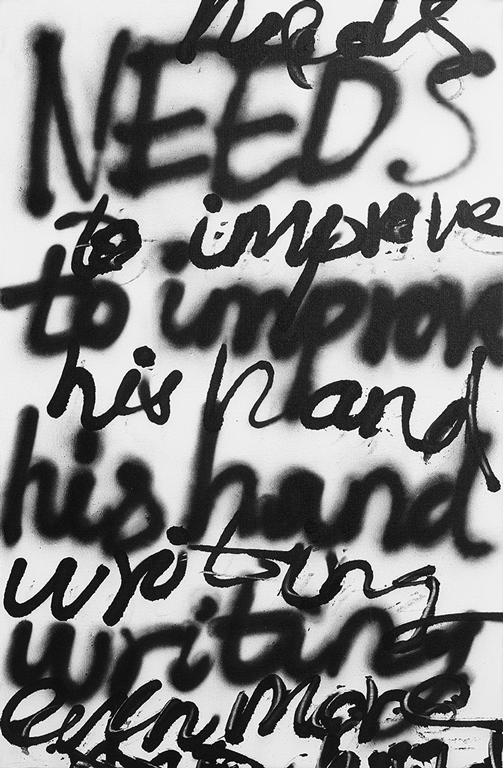 needs
NEEDS
to improve
to improve
his hand
his hand
writing
writing
even more